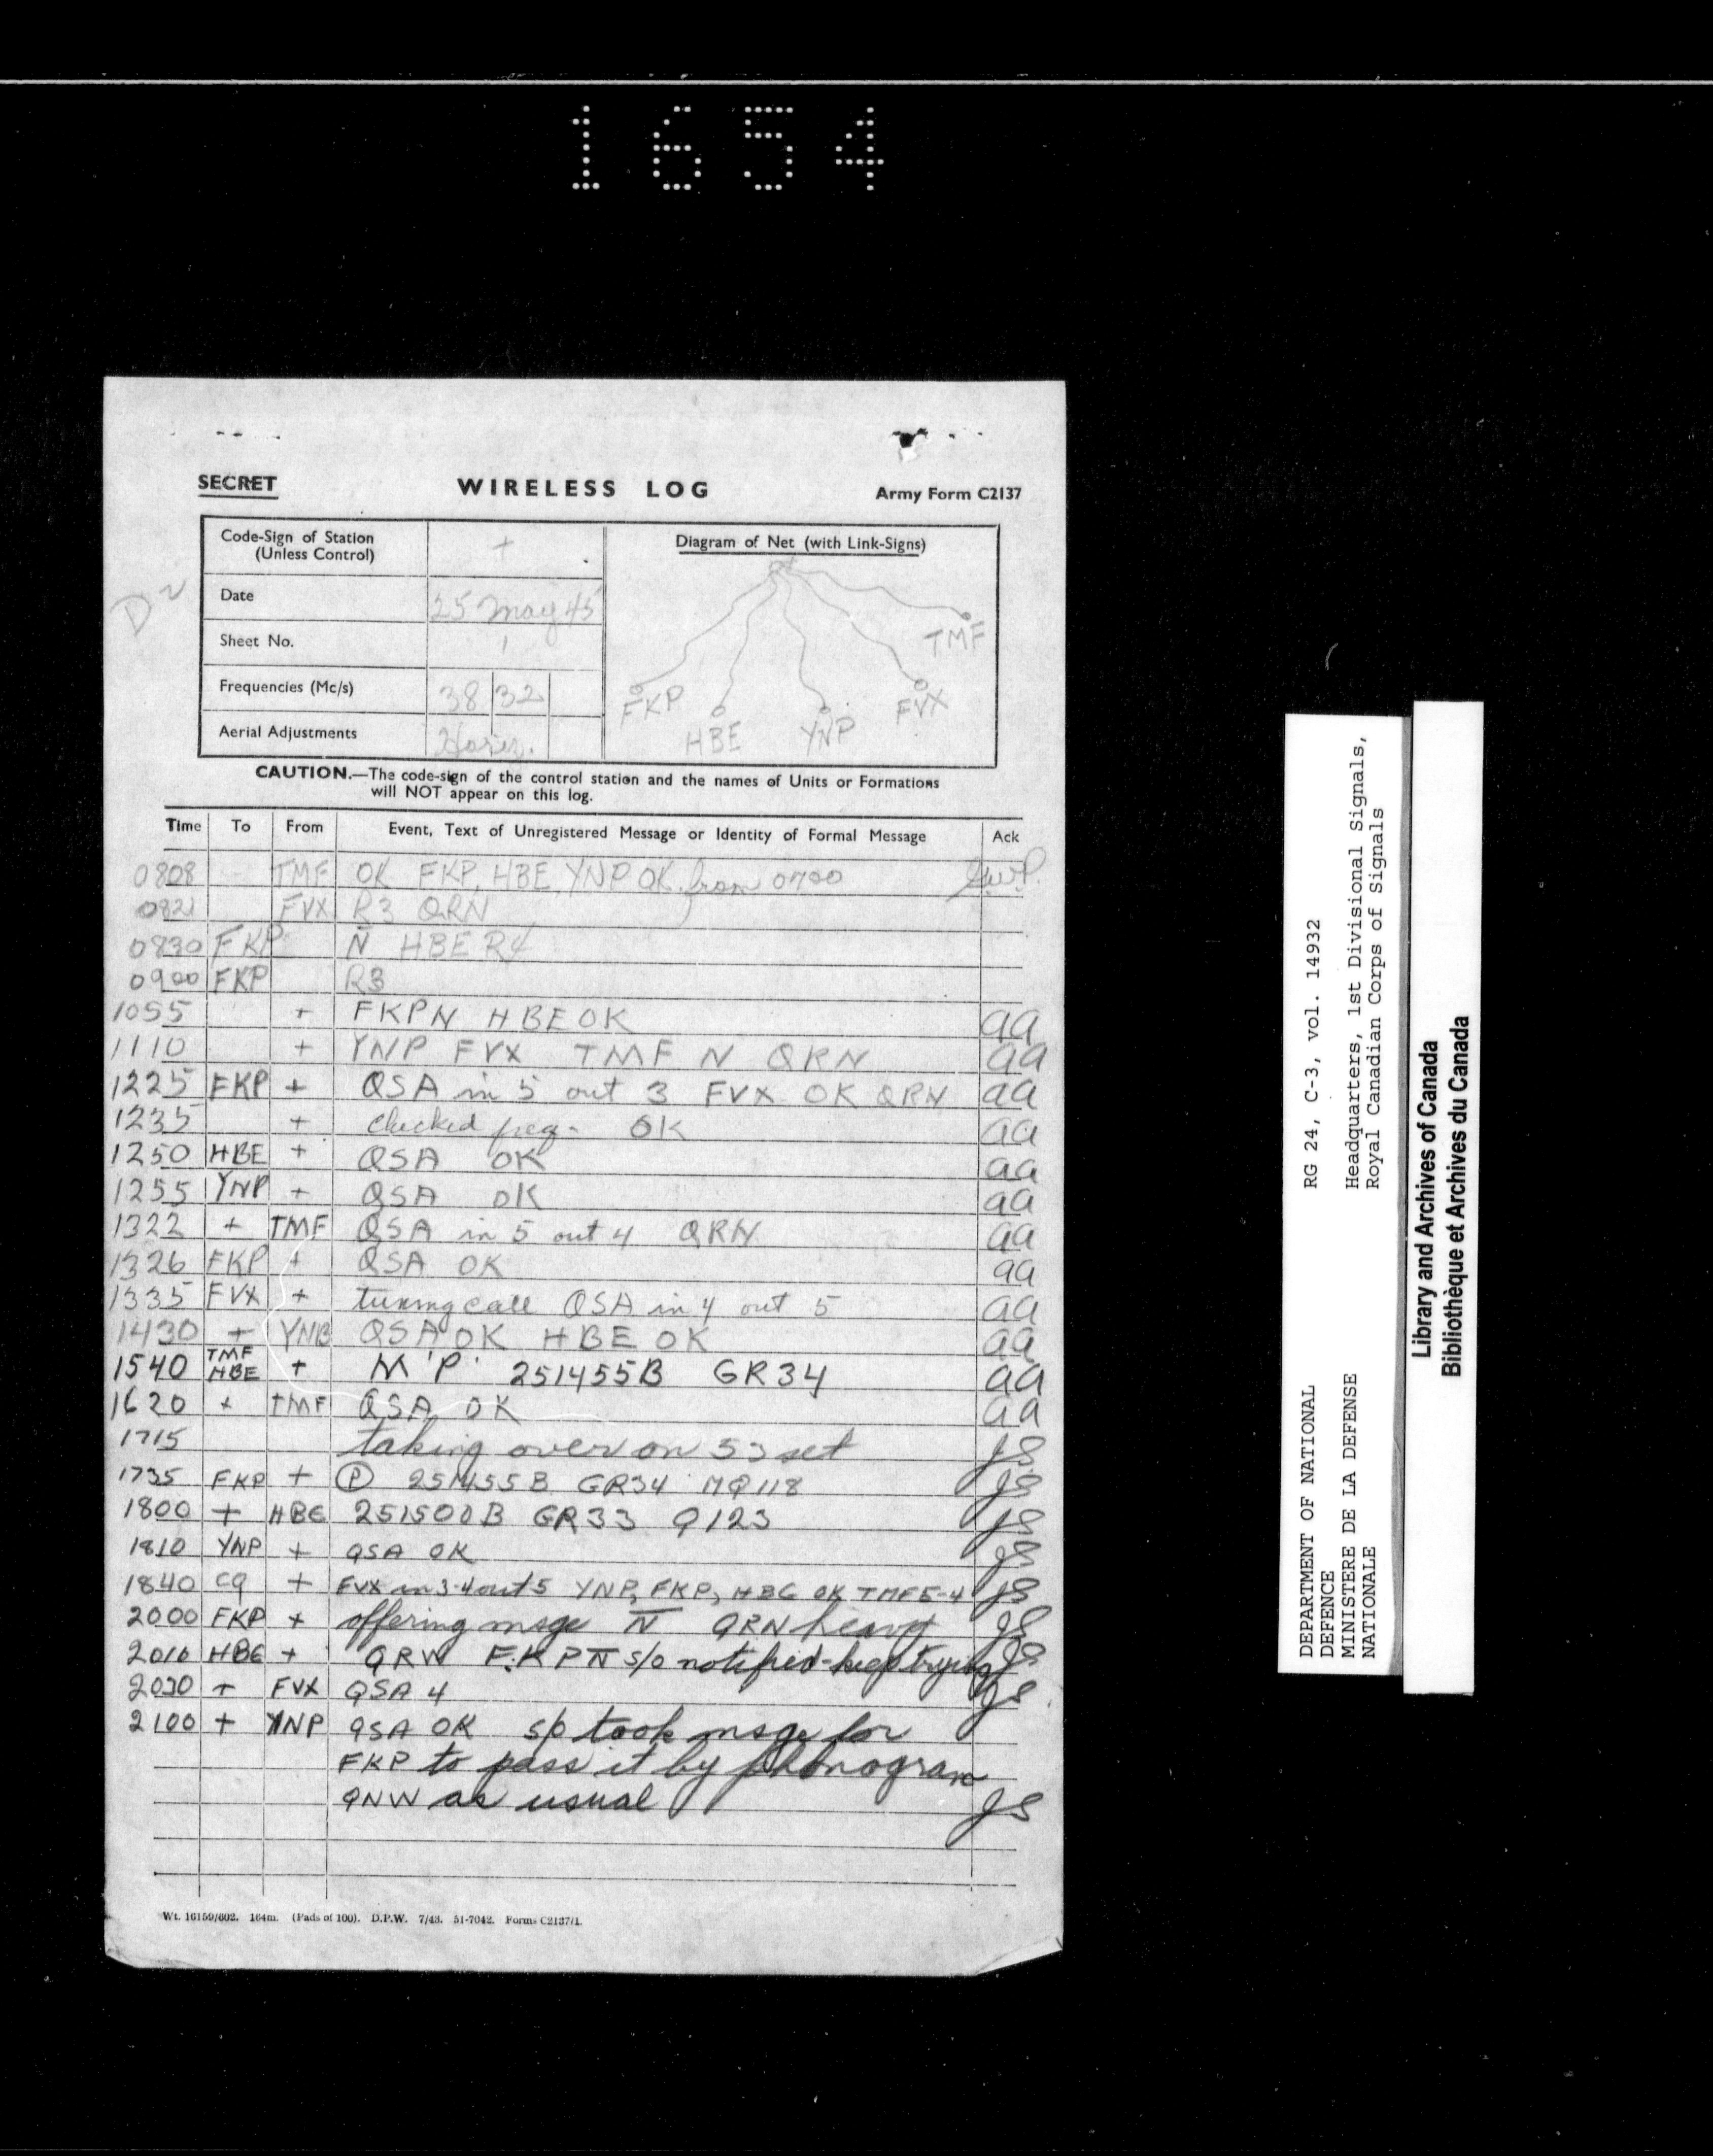 1654
SECRET WIRELESS LOG Army Form C2137
Code-Sign of Station (Unless Control) +
Date 25 May 45
Sheet No. 1
Frequencies (Mc/s) 38 32
Aerial Adjustments
Diagram of Net (with Link-Signs)
TMF
FKP HBE YNP FVX
CAUTION.—The code-sign of the control station and the names of Units or Formations
will NOT appear on this log.
Time To From Event, Text of Unregistered Message or Identity of Formal Message Ack
0808 TMF OK FKP, HBE, YNP OK from 0700
0821 FVX R3 QRN
0830 FKP N HBE R4
0900 FKP R3
1055 + FKP N HBE OK aa
1110 + YNP FVX TMF N QRN aa
1225 FKP + QSA in 5 out 3 FVX OK QRN aa
1235 + checked freq- OK aa
1250 HBE + QSA OK aa
1255 YNP + QSA OK aa
1322 + TMF QSA in 5 out 4 QRN aa
1326 FKP + QSA OK aa
1335 FVX + tuning call QSA in 4 out 5 aa
1430 + YNB QSA OK HBE OK aa
1540 TMF HBE + M 'P' 251455B GR34 aa
1620 + TMF QSA OK aa
1715 taking over on 53 set JS
1735 FKP + Ⓟ 251455B GR34 MQ118 JS
1800 + HBE 251500B GR33 Q123 JS
1810 YNP + QSA OK JS
1840 CQ + FVX in 3-4 out 5 YNP, FKP, HBE OK TMF 5-4 JS
2000 FKP + offering msge N̅ QRN heavy JS
2010 HBE + QRW FKP N̅ s/o notified - keep trying JS
2030 + FVX QSA 4 JS
2100 + YNP QSA OK s/o took msge for
FKP to pass it by phonogram
QNW as usual JS
Wt. 16159/602. 164m. (Pads of 100). D.P.W. 7/43. 51-7042. Forms C2137/1.
RG 24, C-3, vol. 14932
Headquarters, 1st Divisional Signals,
Royal Canadian Corps of Signals
DEPARTMENT OF NATIONAL
DEFENCE
MINISTERE DE LA DEFENSE
NATIONALE
Library and Archives of Canada
Bibliothèque et Archives du Canada